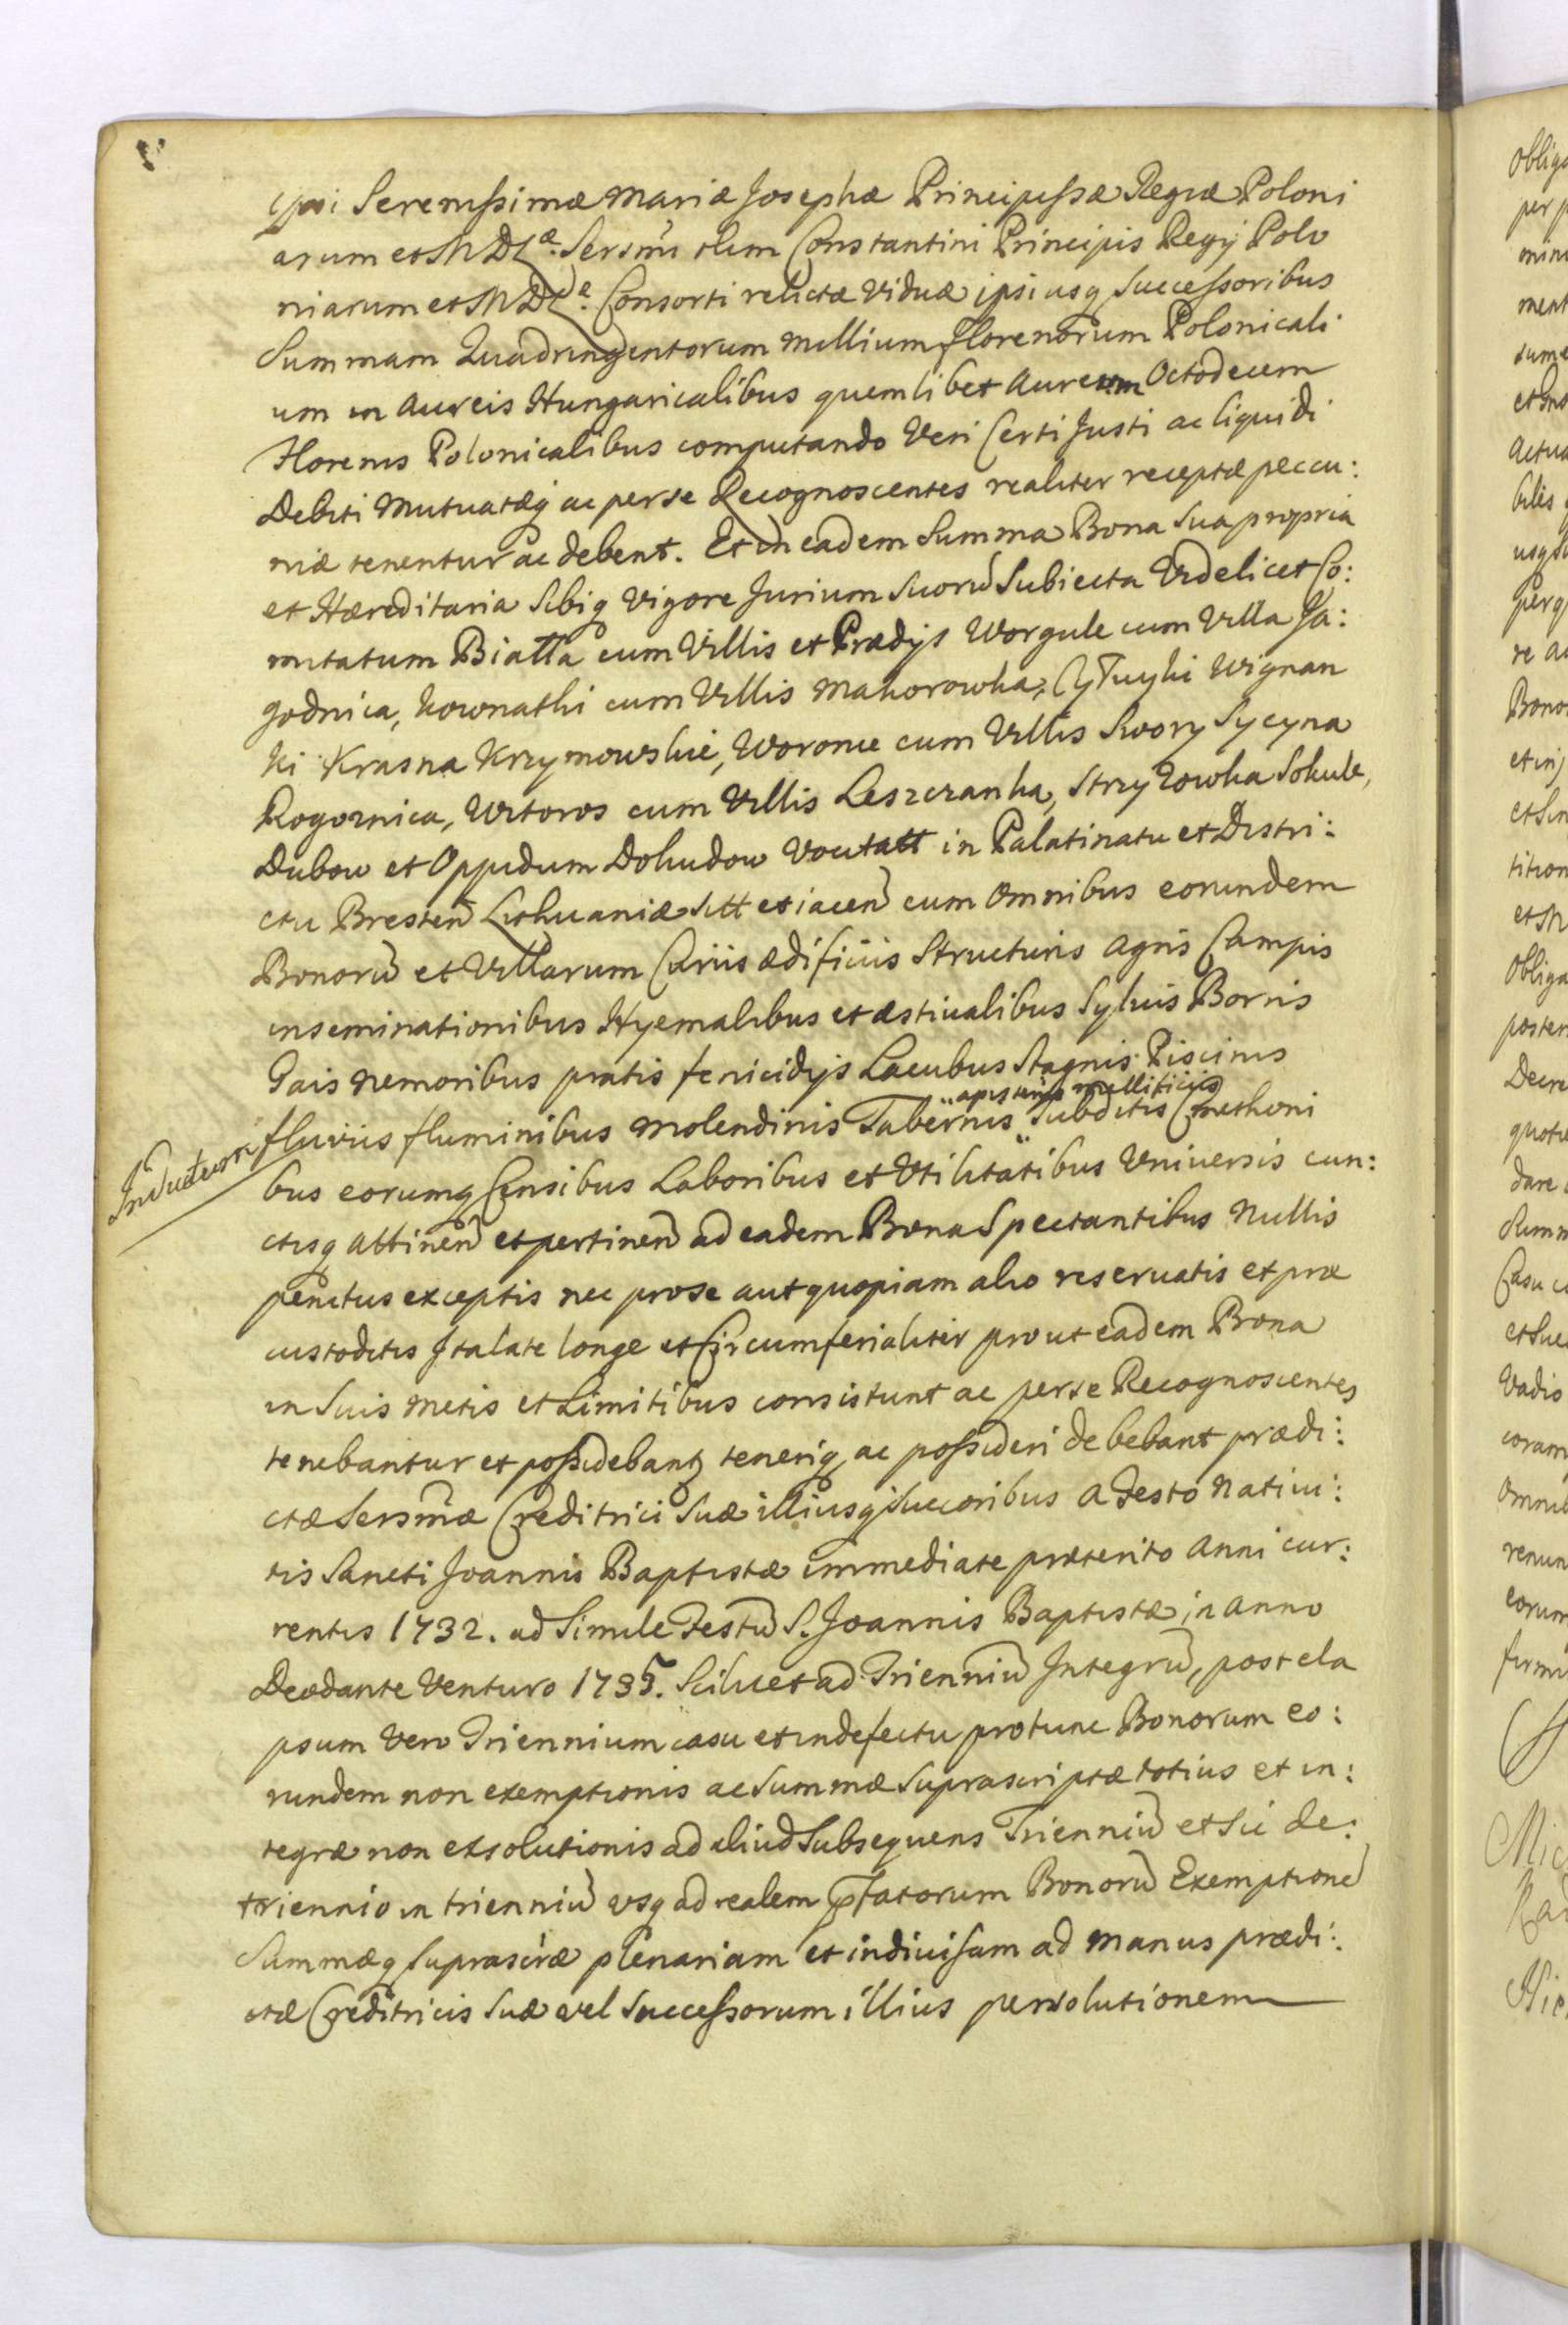 ipsi Serenissimæ Mariæ Josephæ Principessæ Regiæ Poloni
arum et M D Læ. Sersmi olim Constantini Principis Regij Polo
niarum et M D Læ. Consorti relictæ Viduæ ipsiusq Successoribus
Summam Quadringentorum Millium florenorum Polonicali
um in Aureis Hungaricalibus quemlibet Aureum Octodecem
Florenis Polonicalibus computando Veri Certi Justi ac liquidi
Debiti Mutuatæq ac per se Recognoscentes realiter receptæ peccu:
niæ tenentur ac debent. Et in eadem Summa Bona Sua propria
et Hæreditaria Sibiq Vigore Jurium Suorū Subiecta Videlicet Co:
mitatum Biatta cum Villis et Prædijs Worgule cum Villa Ja:
godnica, Kownathi cum Villis Makorowka, Cytuyki Wignan
ki Krasna Krzymowskie, Woronie cum Villis Swory Sycyna
Rogoznica, Witoros cum Villis Leszczanka, Strzyzowka Sokule,
Dubow et Oppidum Dokudow Vocitatt in Palatinatu et Distri:
ctu Bresten Lithuaniæ Sitt et iacen cum Omnibus eorundem
Bonorū et Villarum Curiis ædificiis Structuris Agris Campis
inseminationibus Hyemalibus et æstiualibus Syluis Borris
Gais Nemoribus pratis fenicidijs Lacubus Stagnis Piscinis
apistiris mellificijs
fluviis fluminibus molendinis Tabernis Subditis Cmethoni
Inductum
bus eorumq Censibus Laboribus et Utilitatibus Vniuersis cun:
ctisq attinen et pertinen ad eadem Bona Spectantibus Nullis
penitus exceptis nec pro se aut quopiam alio reseruatis et præ
custoditis Ita late longe et Circumferialiter prout eadem Bona
in Suis Metis et Limitibus consistunt ac per se Recognoscentes
tenebantur et possidebant teneriq ac possideri debebant prædi:
ctæ Sersmæ Creditrici Suæ illiusq Succoribus a Festo Natiui:
tis Sancti Joannis Baptistæ immediate præterito Anni cur:
rentis 1732. ad Simile Festū S. Joannis Baptistæ in Anno
Deodante Venturo 1735. Scilicet ad Trienniū Integrū, post ela
psum Vero Triennium casu et indefectu protunc Bonorum eo:
rundem non exemptionis ac Summæ Suprascriptæ totius et in:
tegræ non exsolutionis ad aliud Subsequens Trienniū et Sic de:
triennio in trienniū usq ad realem pfatorum Bonorū Exemptionē
Summæq Suprascræ plenariam et indiuisam ad Manus prædi:
ctæ Creditricis Suæ vel Successorum illius persolutionem